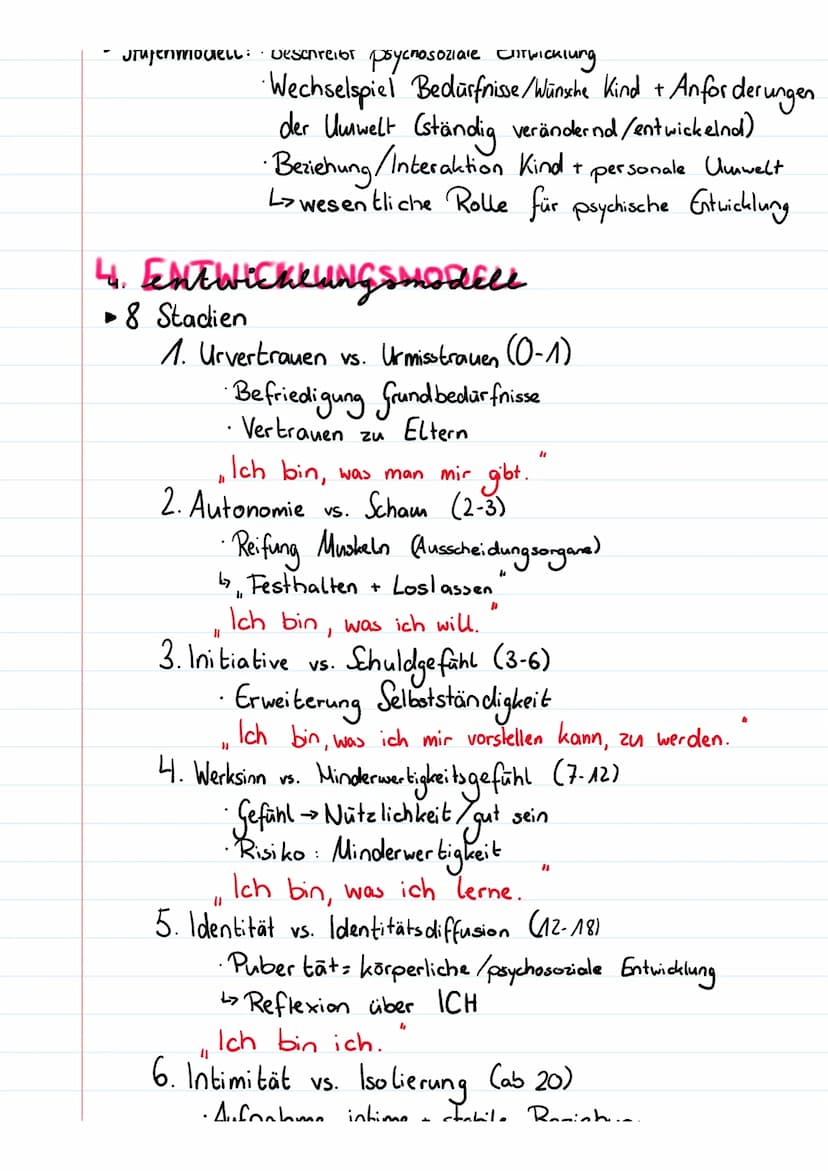 - Stufenmodell: · beschreibt psychosoziale Entwicklung
· Wechselspiel Bedürfnisse/Wünsche Kind + Anforderungen
der Umwelt (ständig verändernd/entwickelnd)
· Beziehung/Interaktion Kind + personale Umwelt
↳ wesentliche Rolle für psychische Entwicklung
4. ENTWICKLUNGSMODELL
▸ 8 Stadien
1. Urvertrauen vs. Urmisstrauen (0-1)
· Befriedigung Grundbedürfnisse
· Vertrauen zu Eltern
„Ich bin, was man mir gibt."
2. Autonomie vs. Scham (2-3)
· Reifung Muskeln (Ausscheidungsorgane)
↳ „Festhalten + Loslassen"
„Ich bin, was ich will."
3. Initiative vs. Schuldgefühl (3-6)
· Erweiterung Selbstständigkeit
„Ich bin, was ich mir vorstellen kann, zu werden."
4. Werksinn vs. Minderwertigkeitsgefühl (7-12)
· Gefühl → Nützlichkeit/gut sein
· Risiko: Minderwertigkeit
„Ich bin, was ich lerne."
5. Identität vs. Identitätsdiffusion (12-18)
· Pubertät = körperliche/psychosoziale Entwicklung
↳ Reflexion über ICH
„Ich bin ich."
6. Intimität vs. Isolierung (ab 20)
· Aufnahme intime + stabile